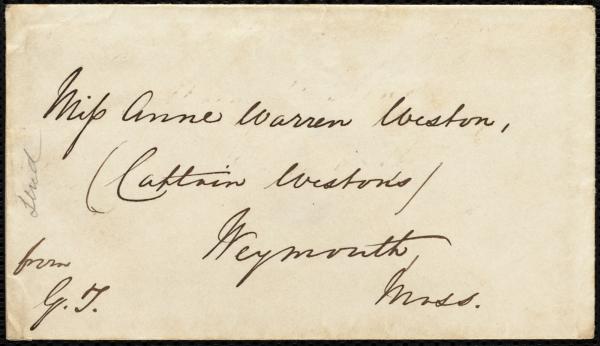 Miss Anne Warren Weston,
(Captain Weston's)
Weymouth,
Mass.
from
G. T.